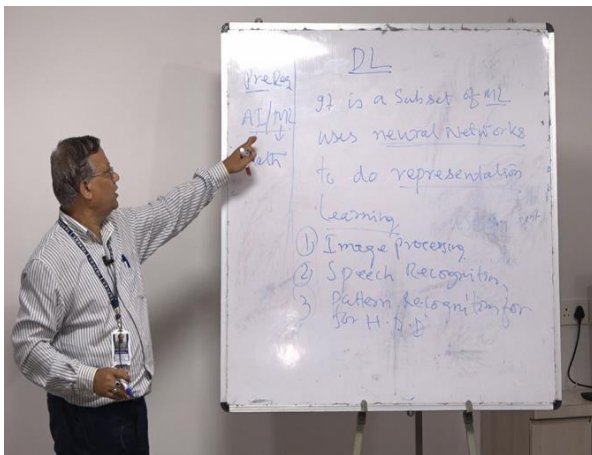 DL
PreReq
AI/ML
It is a Subset of ML
uses neural Networks
to do representation
Learning
① Image processing
② Speech Recognition,
3 Pattern Recognition for
for H.D.D